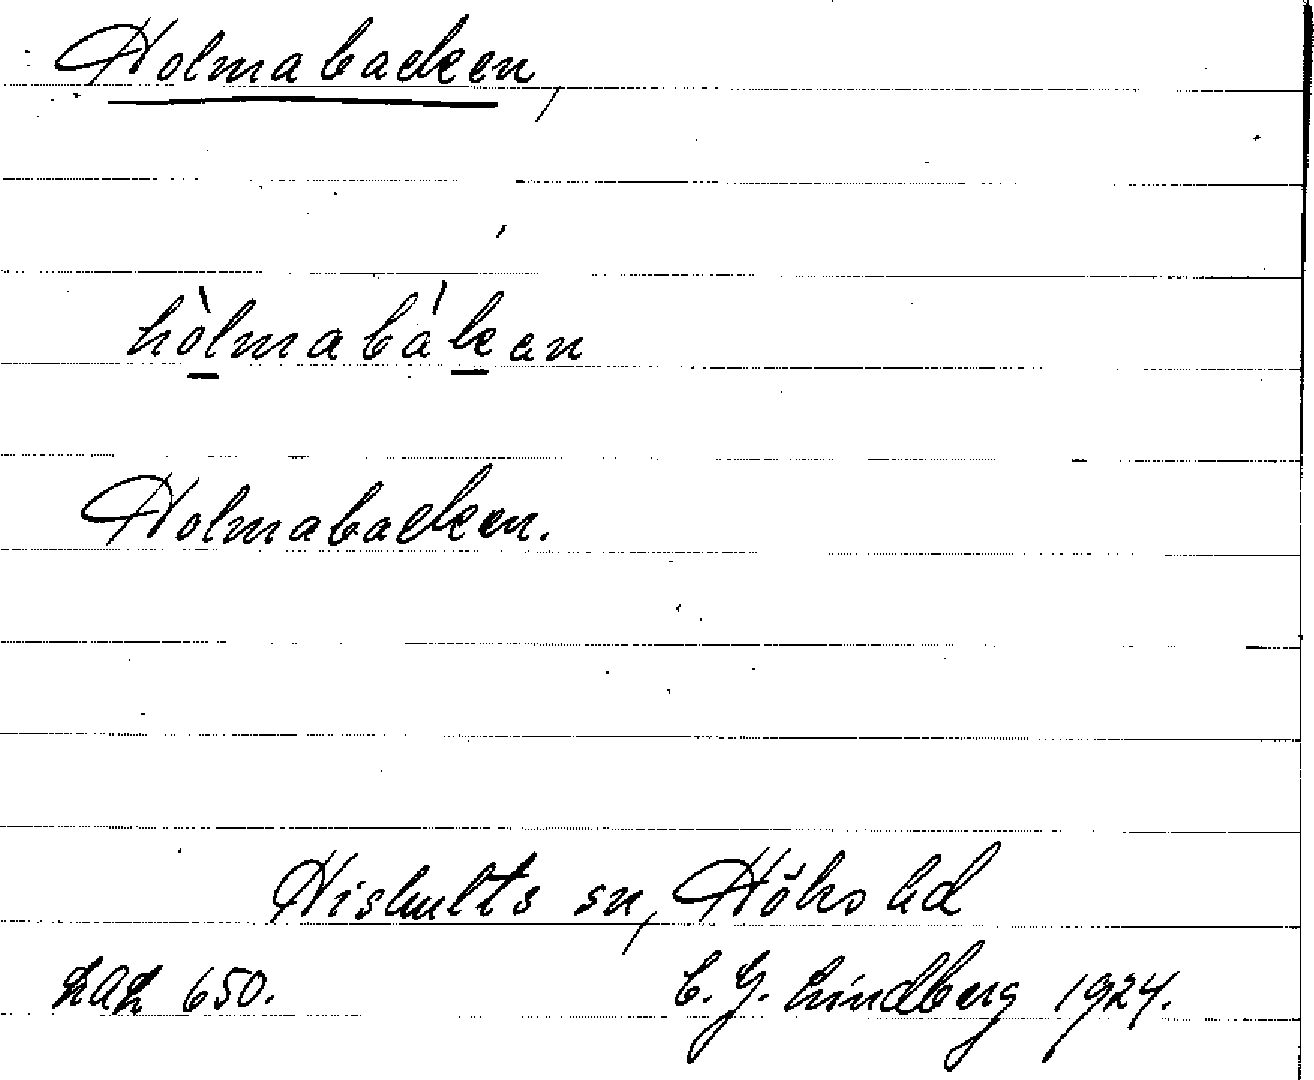 Holmabacken,
hòlmabákan
Holmabacken.
Hishults sn, Höks hd
LAL 650.
C. G. Lindberg 1924.